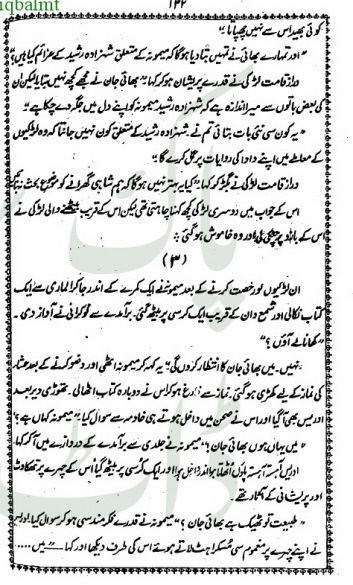 iqbalmt
۱۳۲
کوئی بھید اس سے نہیں چھپایا۔"
"اور تمہارے بھائی نے تمہیں بتا دیا ہوگا کہ میمونہ کے متعلق شہزادہ رشید کے عزائم کیا ہیں؟"
دراز قامت لڑکی نے قدرے پریشان ہو کر کہا۔ "بھائی جان نے مجھے کچھ نہیں بتایا لیکن ان
کی بعض باتوں سے میرا اندازہ ہے کہ شہزادہ رشید میمونہ کو اپنے دل میں جگہ دے چکا ہے۔"
"یہ کون سی نئی بات بتائی تم نے۔ شہزادہ رشید کے متعلق کون نہیں جانتا کہ وہ لڑکیوں
کے معاملے میں اپنے دادا کی روایات پر عمل کرے گا۔"
دراز قامت لڑکی نے بگڑ کر کہا۔ "کیا یہ بہتر نہیں ہوگا کہ ہم شاہی گھرانے کو موضوع بحث نہ بنائیں
اس کے جواب میں دوسری لڑکی کچھ کہنا چاہتی تھی لیکن اس کے قریب بیٹھنے والی لڑکی نے
اس کے بازو پر چٹکی لی اور وہ خاموش ہو گئی۔
(۳)
ان لڑکیوں کو رخصت کرنے کے بعد میمونہ نے ایک کمرے کے اندر جا کر الماری سے ایک
کتاب نکالی اور شمع دان کے قریب ایک کرسی پر بیٹھ گئی۔ برآمدے سے نوکرانی نے آواز دی۔
"کھانا لے آؤں؟"
"نہیں۔ میں بھائی جان کا انتظار کروں گی" یہ کہہ کر میمونہ اٹھی اور وضو کرنے کے بعد عشاء
کی نماز کے لیے کھڑی ہو گئی۔ نماز سے فارغ ہو کر اس نے دوبارہ کتاب اٹھالی۔ تھوڑی دیر بعد
ادریس بھی آ گیا اور اس نے صحن میں داخل ہوتے ہی خادمہ سے سوال کیا۔ "میمونہ کہاں ہے؟"
"میں یہاں ہوں بھائی جان!" میمونہ نے جلدی سے برآمدے کے دروازے میں آ کر کہا۔
ادریس آہستہ آہستہ پاؤں اٹھاتا ہوا اندر داخل ہوا اور ایک کرسی پر بیٹھ گیا اس کے چہرے پر تھکاوٹ
اور پریشانی کے آثار تھے۔
"طبیعت تو ٹھیک ہے بھائی جان؟" میمونہ نے قدرے فکر مند سی ہو کر سوال کیا! ادریس
نے اپنے چہرے پر مغموم سی مسکراہٹ لاتے ہوئے اس کی طرف دیکھا اور کہا — "میں .....